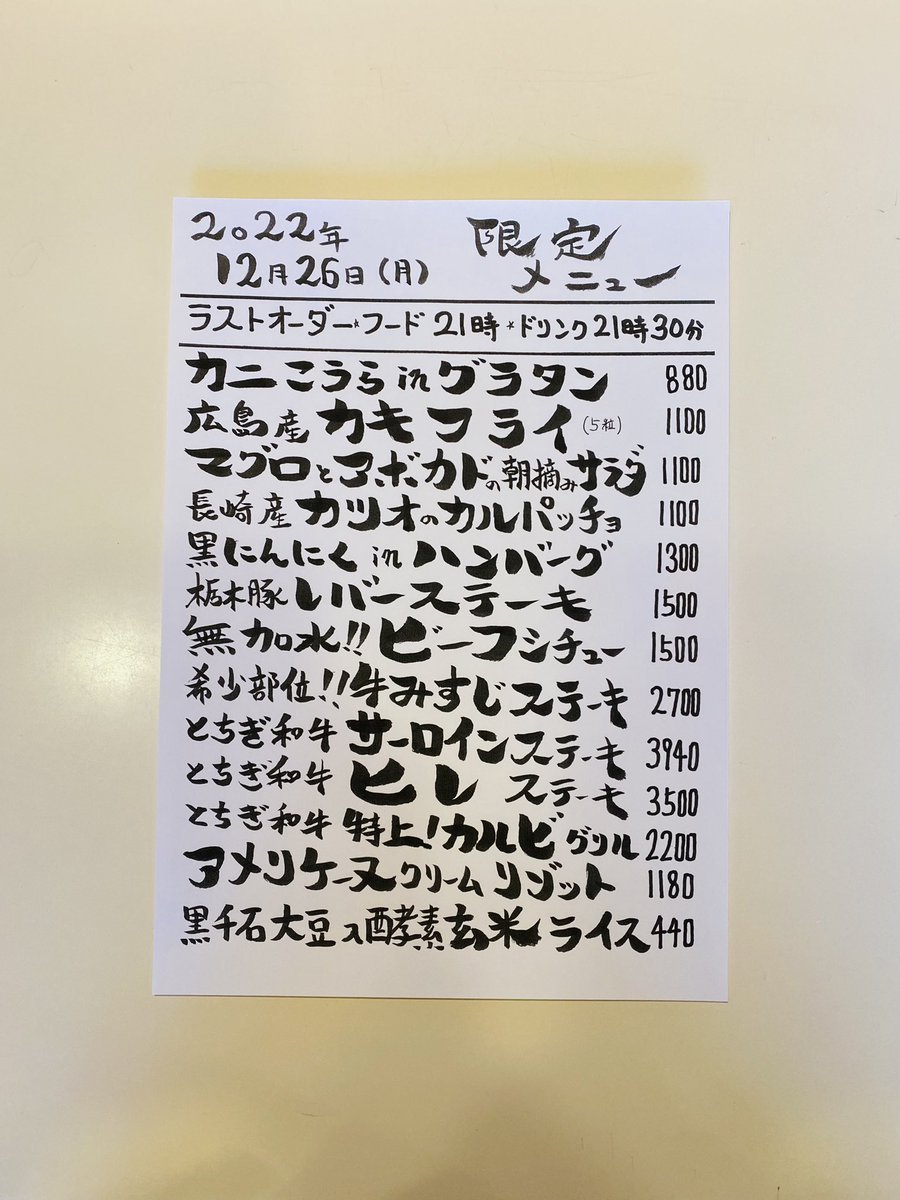 2022年 限定
12月26日(月) メニュー
ラストオーダー*フード 21時 *ドリンク21時30分
カニこうら in グラタン 880
広島産 カキフライ (5粒) 1100
マグロとアボカドの朝摘みサラダ 1100
長崎産 カツオのカルパッチョ 1100
黒にんにく in ハンバーグ 1300
栃木豚 レバーステーキ 1500
無加水!! ビーフシチュー 1500
希少部位!! 牛みすじステーキ 2700
とちぎ和牛 サーロインステーキ 3940
とちぎ和牛 ヒレ ステーキ 3500
とちぎ和牛 特上! カルビグリル 2200
アメリケーヌクリームリゾット 1180
黒千石大豆入酵素玄米ライス 440